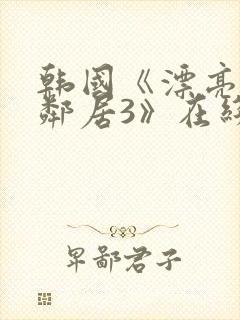 韩国《漂亮
邻居3》在线
卑鄙君子